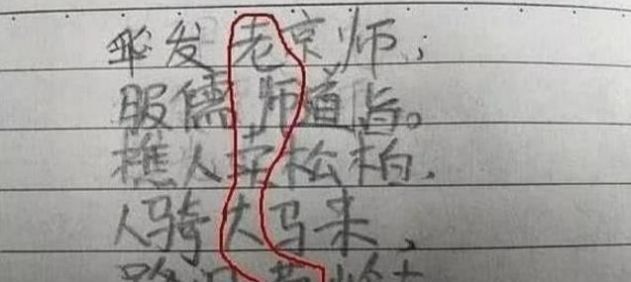 发老京师；
服儒师道旨。
樵人卖松柏.
人骑大马来、